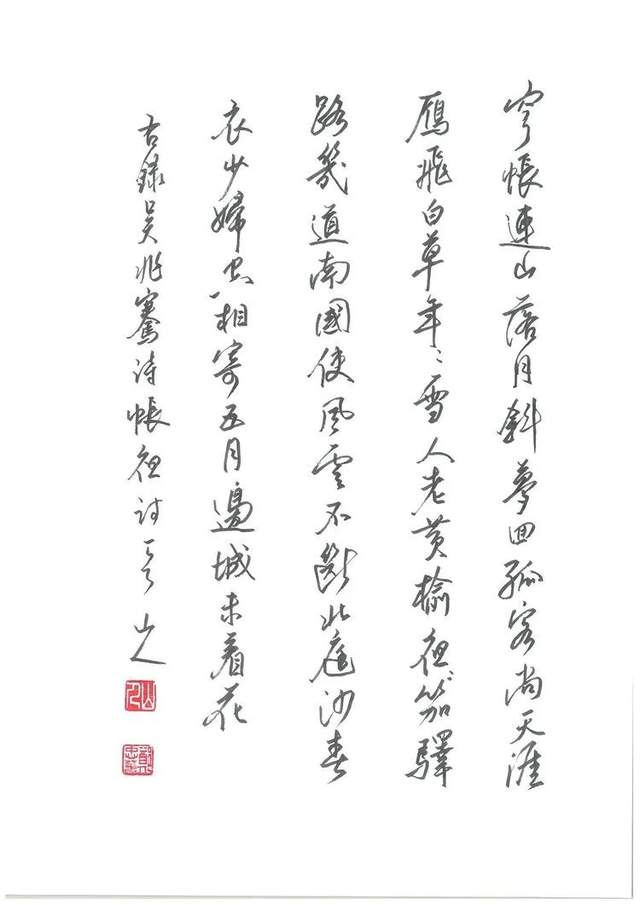 穹帳連山落月斜夢回孤客尚天涯
鴈飛白草年〻雪人老黄榆夜〻笳驛
路幾道南國使風雲不斷北庭沙春
衣少婦空相寄五月邊城未着花
右錄吴兆騫詩帳夜詩 山人
山人